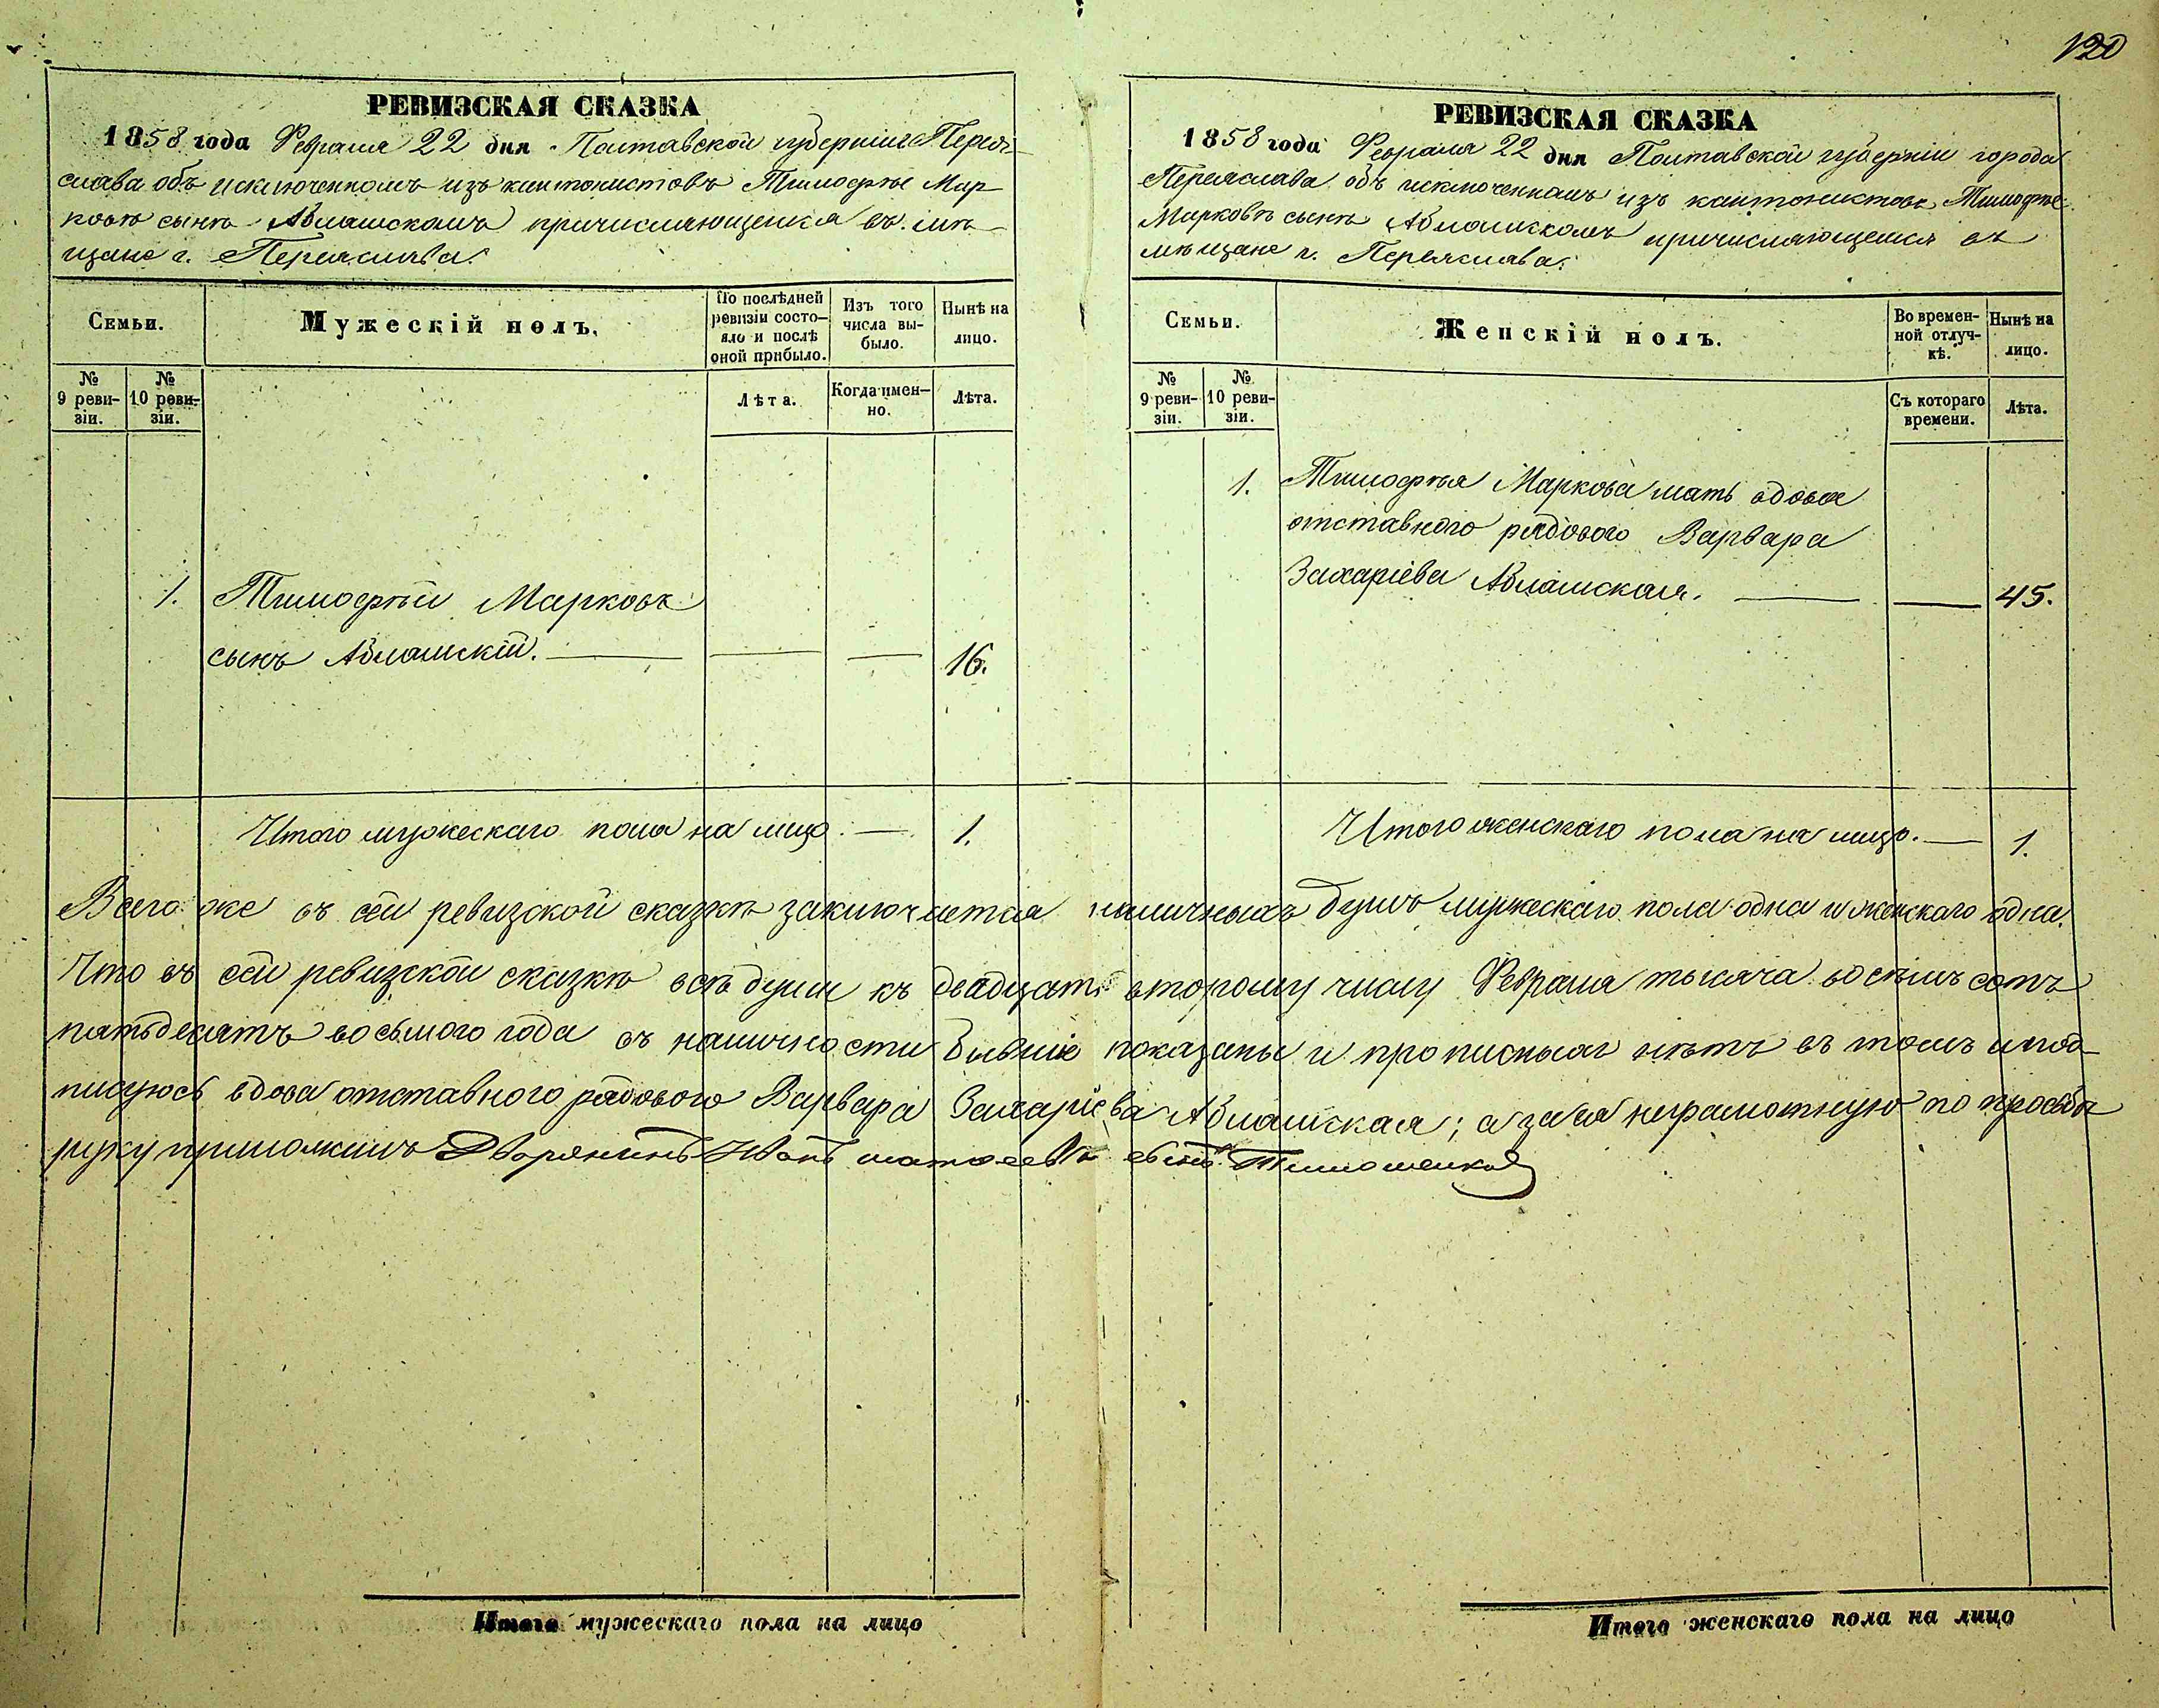 120
РЕВИЗСКАЯ СКАЗКА
1858 года Февраля 22 дня Полтавской губерніи Перея-
слава объ исключенномъ изъ кантонистовъ Тимофѣе Мар-
ковѣ сынѣ Аблашскомъ причисляющемся въ мѣ-
щане г. Переяслава.
Семьи.
Мужескій полъ.
По послѣдней
ревизіи состо-
яло и послѣ
оной прибыло.
Изъ того
числа вы-
было.
Нынѣ на
лицо.
№
9 реви-
зіи.
№
10 реви-
зіи.
Лѣта.
Когда имен-
но.
Лѣта.
1. Тимофѣй Марковъ
сынъ Аблашскій. 16.
Итого мужескаго пола на лицо. — 1.
РЕВИЗСКАЯ СКАЗКА
1858 года Февраля 22 дня Полтавской губерніи города
Переяслава объ исключенномъ изъ кантонистовъ Тимофѣе
Марковѣ сынѣ Аблашскомъ причисляющемся въ
мѣщане г. Переяслава.
Семьи.
Женскій полъ.
Во времен-
ной отлуч-
кѣ.
Нынѣ на
лицо.
№
9 реви-
зіи.
№
10 реви-
зіи.
Съ котораго
времени.
Лѣта.
1. Тимофѣя Маркова мать вдова
отставного рядового Варвара
Захаріева Аблашская. 45.
Итого женскаго пола на лицо. — 1.
Всего же въ сей ревизской сказкѣ заключается наличныхъ душъ мужескаго пола одна и женскаго одна.
Что въ сей ревизской сказкѣ всѣ души къ двадцать второму числу Февраля тысяча восемь сотъ
пятьдесятъ восьмого года въ наличности бывшіе показаны и прописныхъ нѣтъ въ томъ и под-
писуюсь вдова отставного рядового Варвара Захаріева Аблашская; а за ея неграмотную по просьбѣ
руку приложилъ Дворянинъ Иванъ сынъ Тимошенко
Итого мужескаго пола на лицо
Итого женскаго пола на лицо